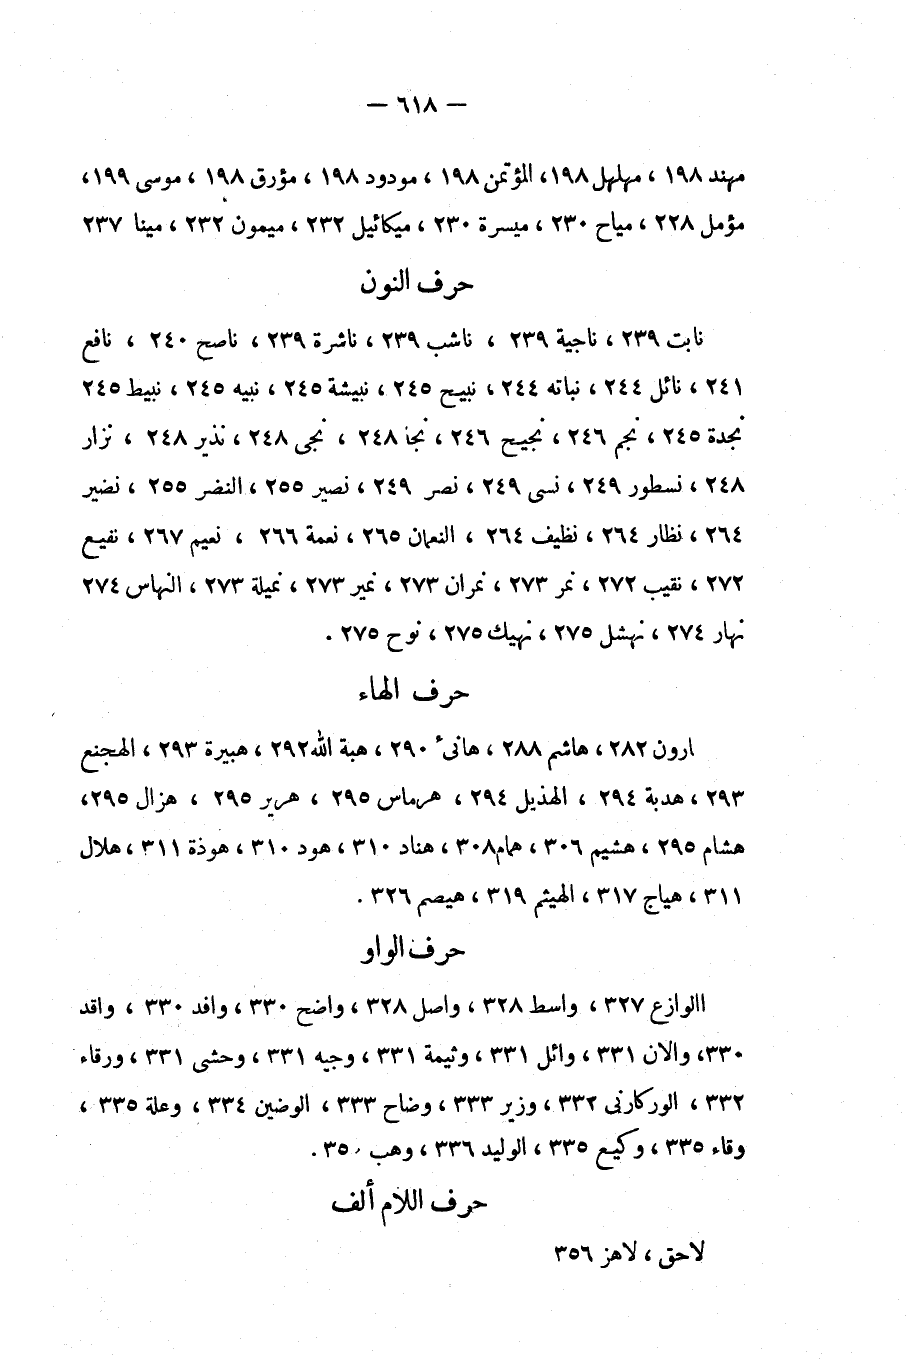 — ٦١٨ —
مهند ١٩٨ ، مهلهل ١٩٨، المؤتمن ١٩٨ ، مودود ١٩٨ ، مؤرق ١٩٨ ، موسى ١٩٩،
مؤمل ٢٢٨ ، مياح ٢٣٠ ، ميسرة ٢٣٠ ، ميكائيل ٢٣٢ ، ميمون ٢٣٢ ، مينا ٢٣٧
حرف النون
نابت ٢٣٩ ، ناجية ٢٣٩ ، ناشب ٢٣٩ ، ناشرة ٢٣٩ ، ناصح ٢٤٠ ، نافع
٢٤١ ، نائل ٢٤٤ ، نباته ٢٤٤ ، نبيح ٢٤٥ ، نبيشة ٢٤٥ ، نبيه ٢٤٥ ، نبيط ٢٤٥
نجدة ٢٤٥ ، نجم ٢٤٦ ، نجيح ٢٤٦ ، نجا ٢٤٨ ، نجى ٢٤٨ ، نذير ٢٤٨ ، نزار
٢٤٨ ، نسطور ٢٤٩ ، نسى ٢٤٩ ، نصر ٢٤٩ ، نصير ٢٥٥ ، النضر ٢٥٥ ، نضير
٢٦٤ ، نظار ٢٦٤ ، نظيف ٢٦٤ ، النعمان ٢٦٥ ، نعمة ٢٦٦ ، نعيم ٢٦٧ ، نقيع
٢٧٢ ، نقيب ٢٧٢ ، نمر ٢٧٣ ، نمران ٢٧٣ ، نمير ٢٧٣ ، نميلة ٢٧٣ ، النهاس ٢٧٤
نهار ٢٧٤ ، نهشل ٢٧٥ ، نهيك ٢٧٥ ، نوح ٢٧٥ .
حرف الهاء
ارون ٢٨٢ ، هاشم ٢٨٨ ، هانىء ٢٩٠ ، هبة الله ٢٩٢ ، هبيرة ٢٩٣ ، الهجنع
٢٩٣ ، هدبة ٢٩٤ ، الهذيل ٢٩٤ ، هرماس ٢٩٥ ، هرير ٢٩٥ ، هزال ٢٩٥،
هشام ٢٩٥ ، هشيم ٣٠٦ ، همام ٣٠٨ ، هناد ٣١٠ ، هود ٣١٠ ، هوذة ٣١١ ، هلال
٣١١ ، هياج ٣١٧ ، الهيثم ٣١٩ ، هيصم ٣٢٦ .
حرف الواو
االوازع ٣٢٧ ، واسط ٣٢٨ ، واصل ٣٢٨ ، واضح ٣٣٠ ، وافد ٣٣٠ ، واقد
٣٣٠، والان ٣٣١ ، وائل ٣٣١ ، وثيمة ٣٣١ ، وجيه ٣٣١ ، وحشى ٣٣١ ، ورقاء
٣٣٢ ، الوركارنى ٣٣٢ ، وزير ٣٣٣ ، وضاح ٣٣٣ ، الوضين ٣٣٤ ، وعلة ٣٣٥ ،
وقاء ٣٣٥ ، وكيع ٣٣٥ ، الوليد ٣٣٦ ، وهب ٣٥٠ .
حرف اللام ألف
لاحق ، لاهز ٣٥٦